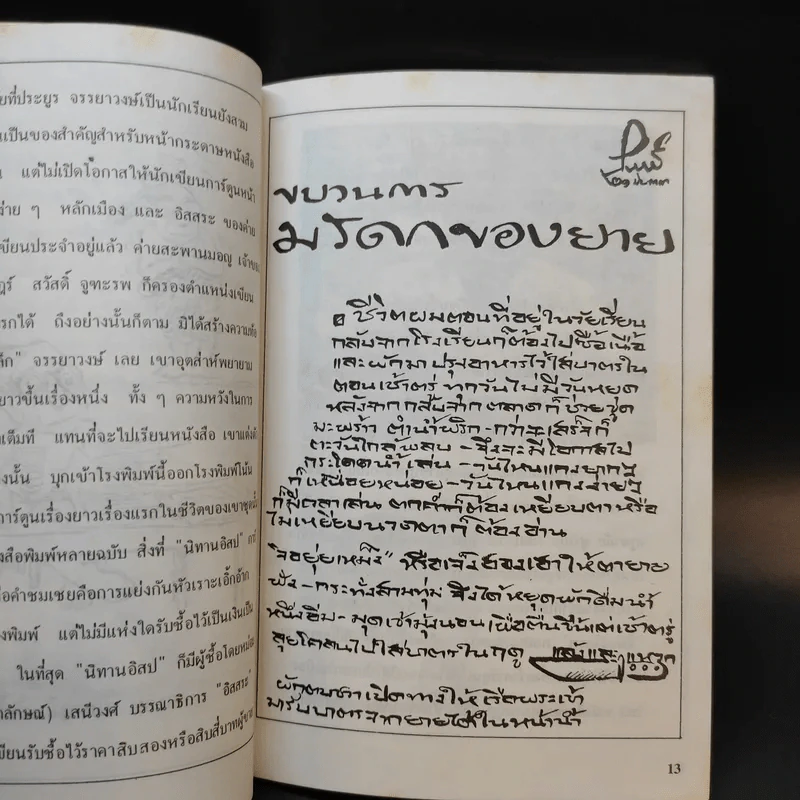 ยที่ประยูร จรรยาวงษ์เป็นนักเรียนยังสวม
เป็นของสำคัญสำหรับหน้ากระดาษหนังสือ
แต่ไม่เปิดโอกาสให้นักเขียนการ์ตูนหน้า
ง่าย ๆ หลักเมือง และ อิสสระ ของค่าย
เขียนประจำอยู่แล้ว ค่ายสะพานมอญ เจ้าของ
สวัสดิ์ จูฑะรพ ก็ครองตำแหน่งเขียน
รกได้ ถึงอย่างนั้นก็ตาม มิได้สร้างความท้อ
จรรยาวงษ์ เลย เขาอุตส่าห์พยายาม
ยาวขึ้นเรื่องหนึ่ง ทั้ง ๆ ความหวังในการ
เต็มที แทนที่จะไปเรียนหนังสือ เขาแต่งตัว
งนั้น บุกเข้าโรงพิมพ์นี้ออกโรงพิมพ์โน้น
การ์ตูนเรื่องยาวเรื่องแรกในชีวิตของเขาชุดนี้
สือพิมพ์หลายฉบับ สิ่งที่ "นิทานอิสป"
อคำชมเชยคือการแย่งกันหัวเราะเอิ๊กอ๊าก
งพิมพ์ แต่ไม่มีแห่งใดรับซื้อไว้เป็นเงินเป็น
ในที่สุด "นิทานอิสป" ก็มีผู้ซื้อโดยหม่อม
าลักษณ์) เสนีวงศ์ บรรณาธิการ "อิสสระ"
ขียนรับซื้อไว้ราคาสิบสองหรือสิบสี่บาทผู้ขาย
ขบวนการ
มรดกของยาย
ชีวิตผมตอนที่อยู่ในวัยเรียน
กลับจากโรงเรียนก็ต้องไปซื้อเนื้อ
และผักมาปรุงอาหารไว้ใส่บาตรใน
ตอนเช้าตรู่ ทุกวันไม่มีวันหยุด
หลังจากกลับจากตลาดก็ช่วยขูด
มะพร้าว ตำน้ำพริก-กว่าจะเสร็จก็
ตะวันใกล้พลบ-จึงจะมีโอกาสไป
กระโดดน้ำเล่น-วันไหนแกงยากๆ
ก็เหนื่อยหน่อย-วันไหนแกงง่ายๆ
ก็มีเวลาเล่น ตกค่ำก็ต้องเหยียบตา หรือ
ไม่เหยียบนวดตาก็ต้องอ่าน
"จอยุ่ยเหม็ง" หรือเจ็งฮองเฮาให้ตายาย
ฟัง-กระทั่งสามทุ่ม จึงได้หยุดพักดื่มน้ำ
หนึ่งอิ่ม-มุดเข้ามุ้งนอน เพื่อตื่นขึ้นแต่เช้าตรู่
ลุยโคลนไปใส่บาตรในฤดู แล้ง และแหวก
ผักตบชวาเปิดทางให้เรือพระเข้า
มารับบาตรจากยายได้ในหน้าน้ำ
13